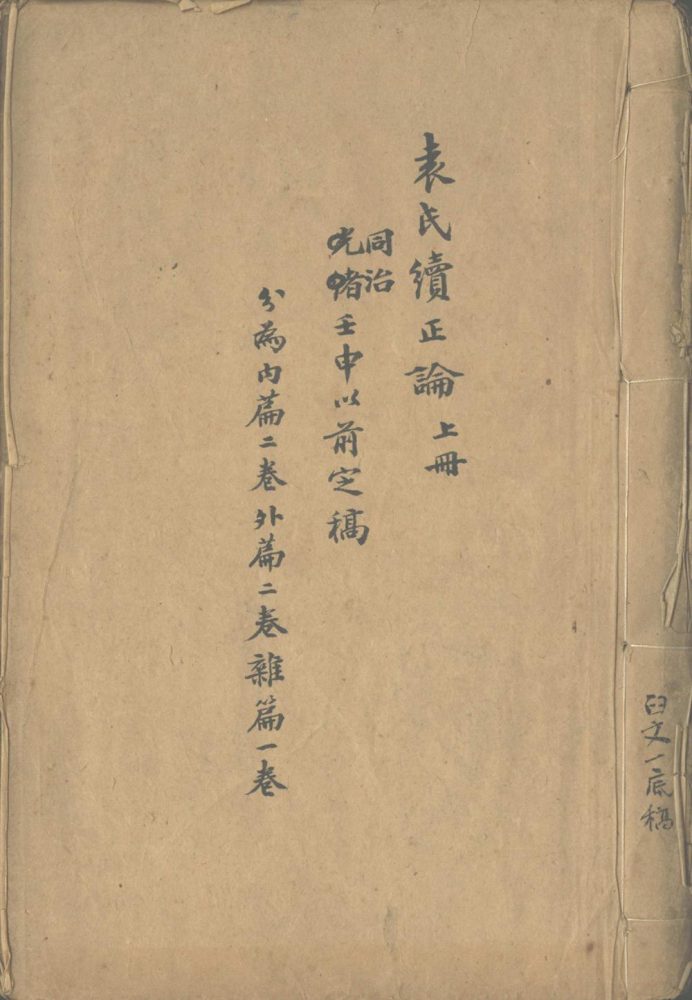 袁氏續正論 上冊
同治
光緒壬申以前定稿
分為內篇二卷外篇二卷雜篇一卷
臼文一底稿